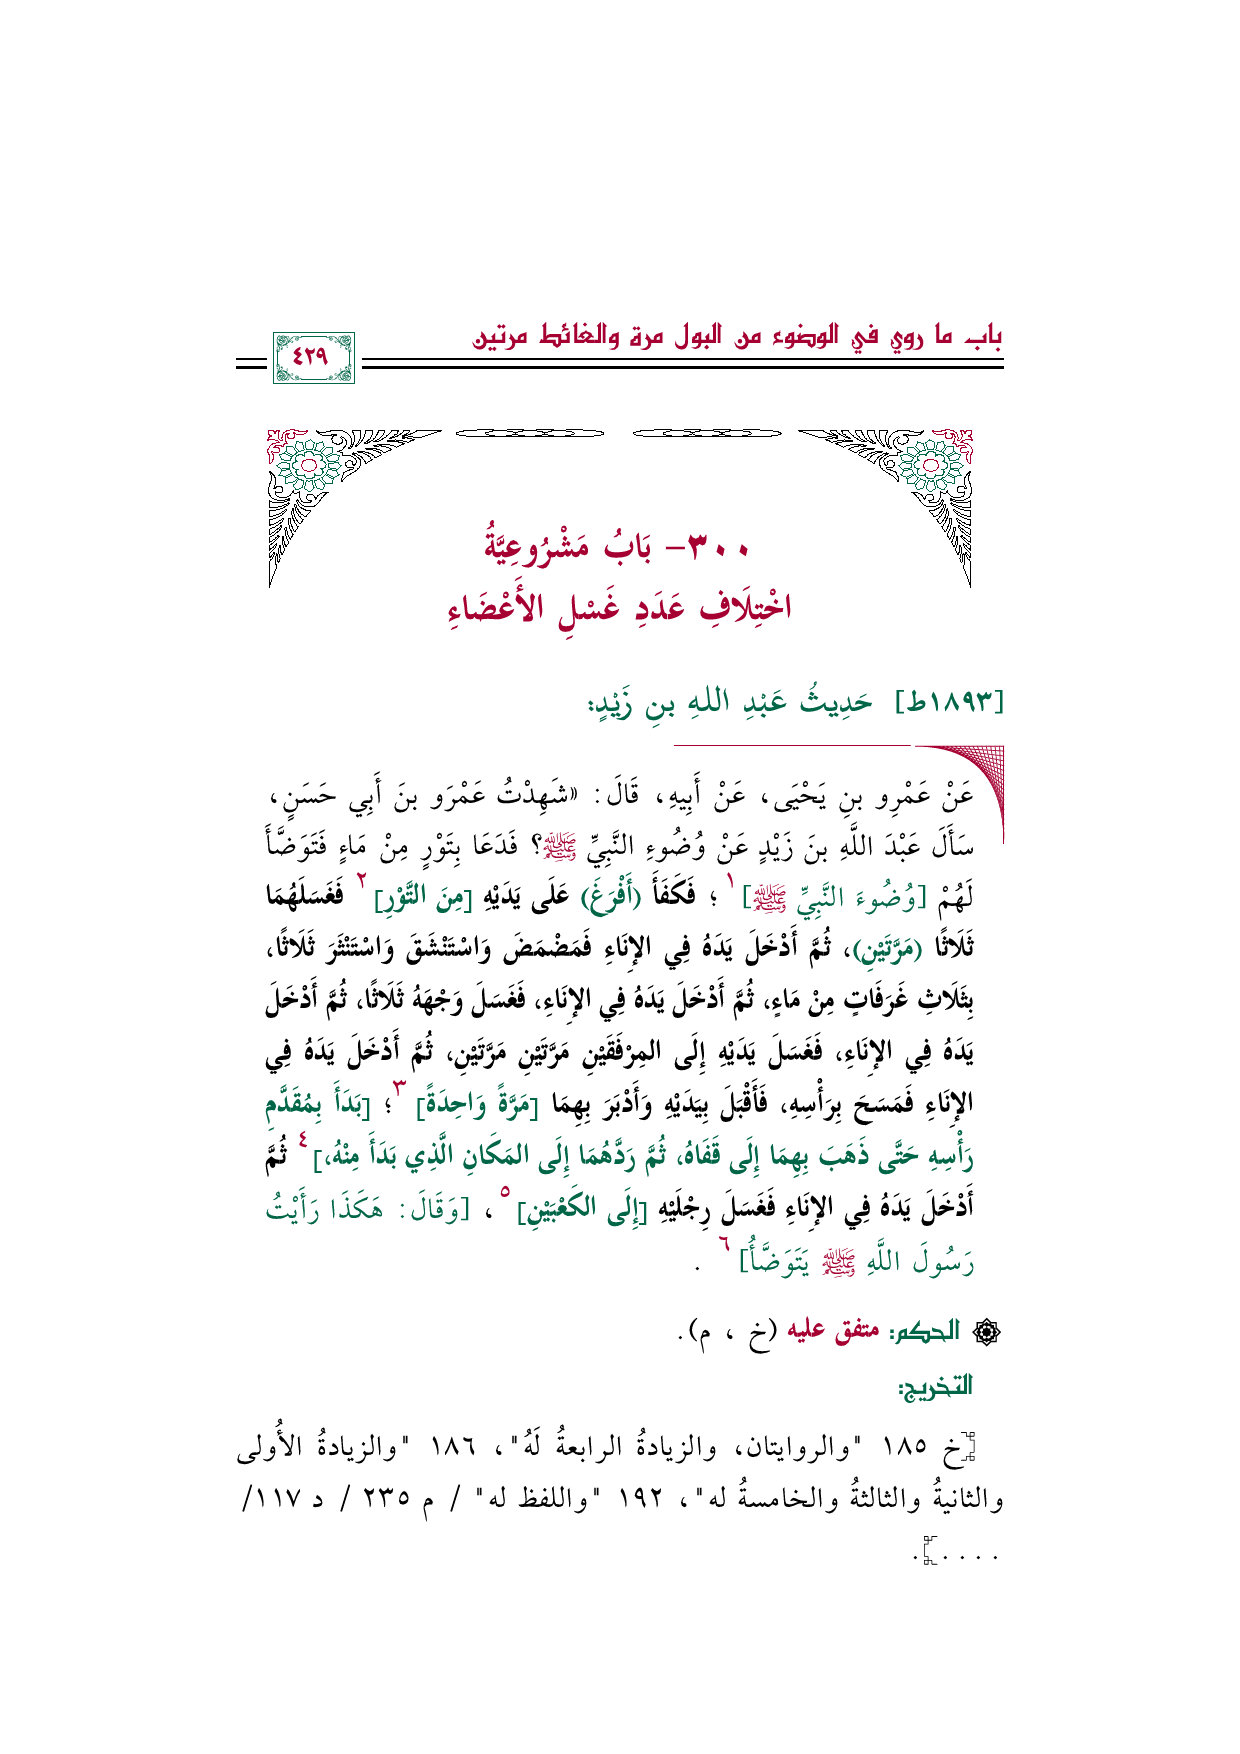 باب ما روي في الوضوء من البول مرة والغائط مرتين
٤٢٩
٣٠٠- بَابُ مَشْرُوعِيَّةُ
اخْتِلَافِ عَدَدِ غَسْلِ الأَعْضَاءِ
[١٨٩٣ط] حَدِيثُ عَبْدِ اللهِ بنِ زَيْدٍ:
عَنْ عَمْرِو بنِ يَحْيَى، عَنْ أَبِيهِ، قَالَ: «شَهِدْتُ عَمْرَو بنَ أَبِي حَسَنٍ،
سَأَلَ عَبْدَ اللَّهِ بنَ زَيْدٍ عَنْ وُضُوءِ النَّبِيِّ ﷺ؟ فَدَعَا بِتَوْرٍ مِنْ مَاءٍ فَتَوَضَّأَ
لَهُمْ [وُضُوءَ النَّبِيِّ ﷺ]١ ؛ فَكَفَأَ (أَفْرَغَ) عَلَى يَدَيْهِ [مِنَ التَّوْرِ]٢ فَغَسَلَهُمَا
ثَلَاثًا (مَرَّتَيْنِ)، ثُمَّ أَدْخَلَ يَدَهُ فِي الإِنَاءِ فَمَضْمَضَ وَاسْتَنْشَقَ وَاسْتَنْثَرَ ثَلَاثًا،
بِثَلَاثِ غَرَفَاتٍ مِنْ مَاءٍ، ثُمَّ أَدْخَلَ يَدَهُ فِي الإِنَاءِ، فَغَسَلَ وَجْهَهُ ثَلَاثًا، ثُمَّ أَدْخَلَ
يَدَهُ فِي الإِنَاءِ، فَغَسَلَ يَدَيْهِ إِلَى المِرْفَقَيْنِ مَرَّتَيْنِ مَرَّتَيْنِ، ثُمَّ أَدْخَلَ يَدَهُ فِي
الإِنَاءِ فَمَسَحَ بِرَأْسِهِ، فَأَقْبَلَ بِيَدَيْهِ وَأَدْبَرَ بِهِمَا [مَرَّةً وَاحِدَةً]٣؛ [بَدَأَ بِمُقَدَّمِ
رَأْسِهِ حَتَّى ذَهَبَ بِهِمَا إِلَى قَفَاهُ، ثُمَّ رَدَّهُمَا إِلَى المَكَانِ الَّذِي بَدَأَ مِنْهُ،]٤ ثُمَّ
أَدْخَلَ يَدَهُ فِي الإِنَاءِ فَغَسَلَ رِجْلَيْهِ [إِلَى الكَعْبَيْنِ]٥، [وَقَالَ: هَكَذَا رَأَيْتُ
رَسُولَ اللَّهِ ﷺ يَتَوَضَّأُ]٦ .
الحكم: متفق عليه (خ ، م).
التخريج:
[خ ١٨٥ "والروايتان، والزيادةُ الرابعةُ لَهُ"، ١٨٦ "والزيادةُ الأُولى
والثانيةُ والثالثةُ والخامسةُ له"، ١٩٢ "واللفظ له" / م ٢٣٥ / د ١١٧/
....].